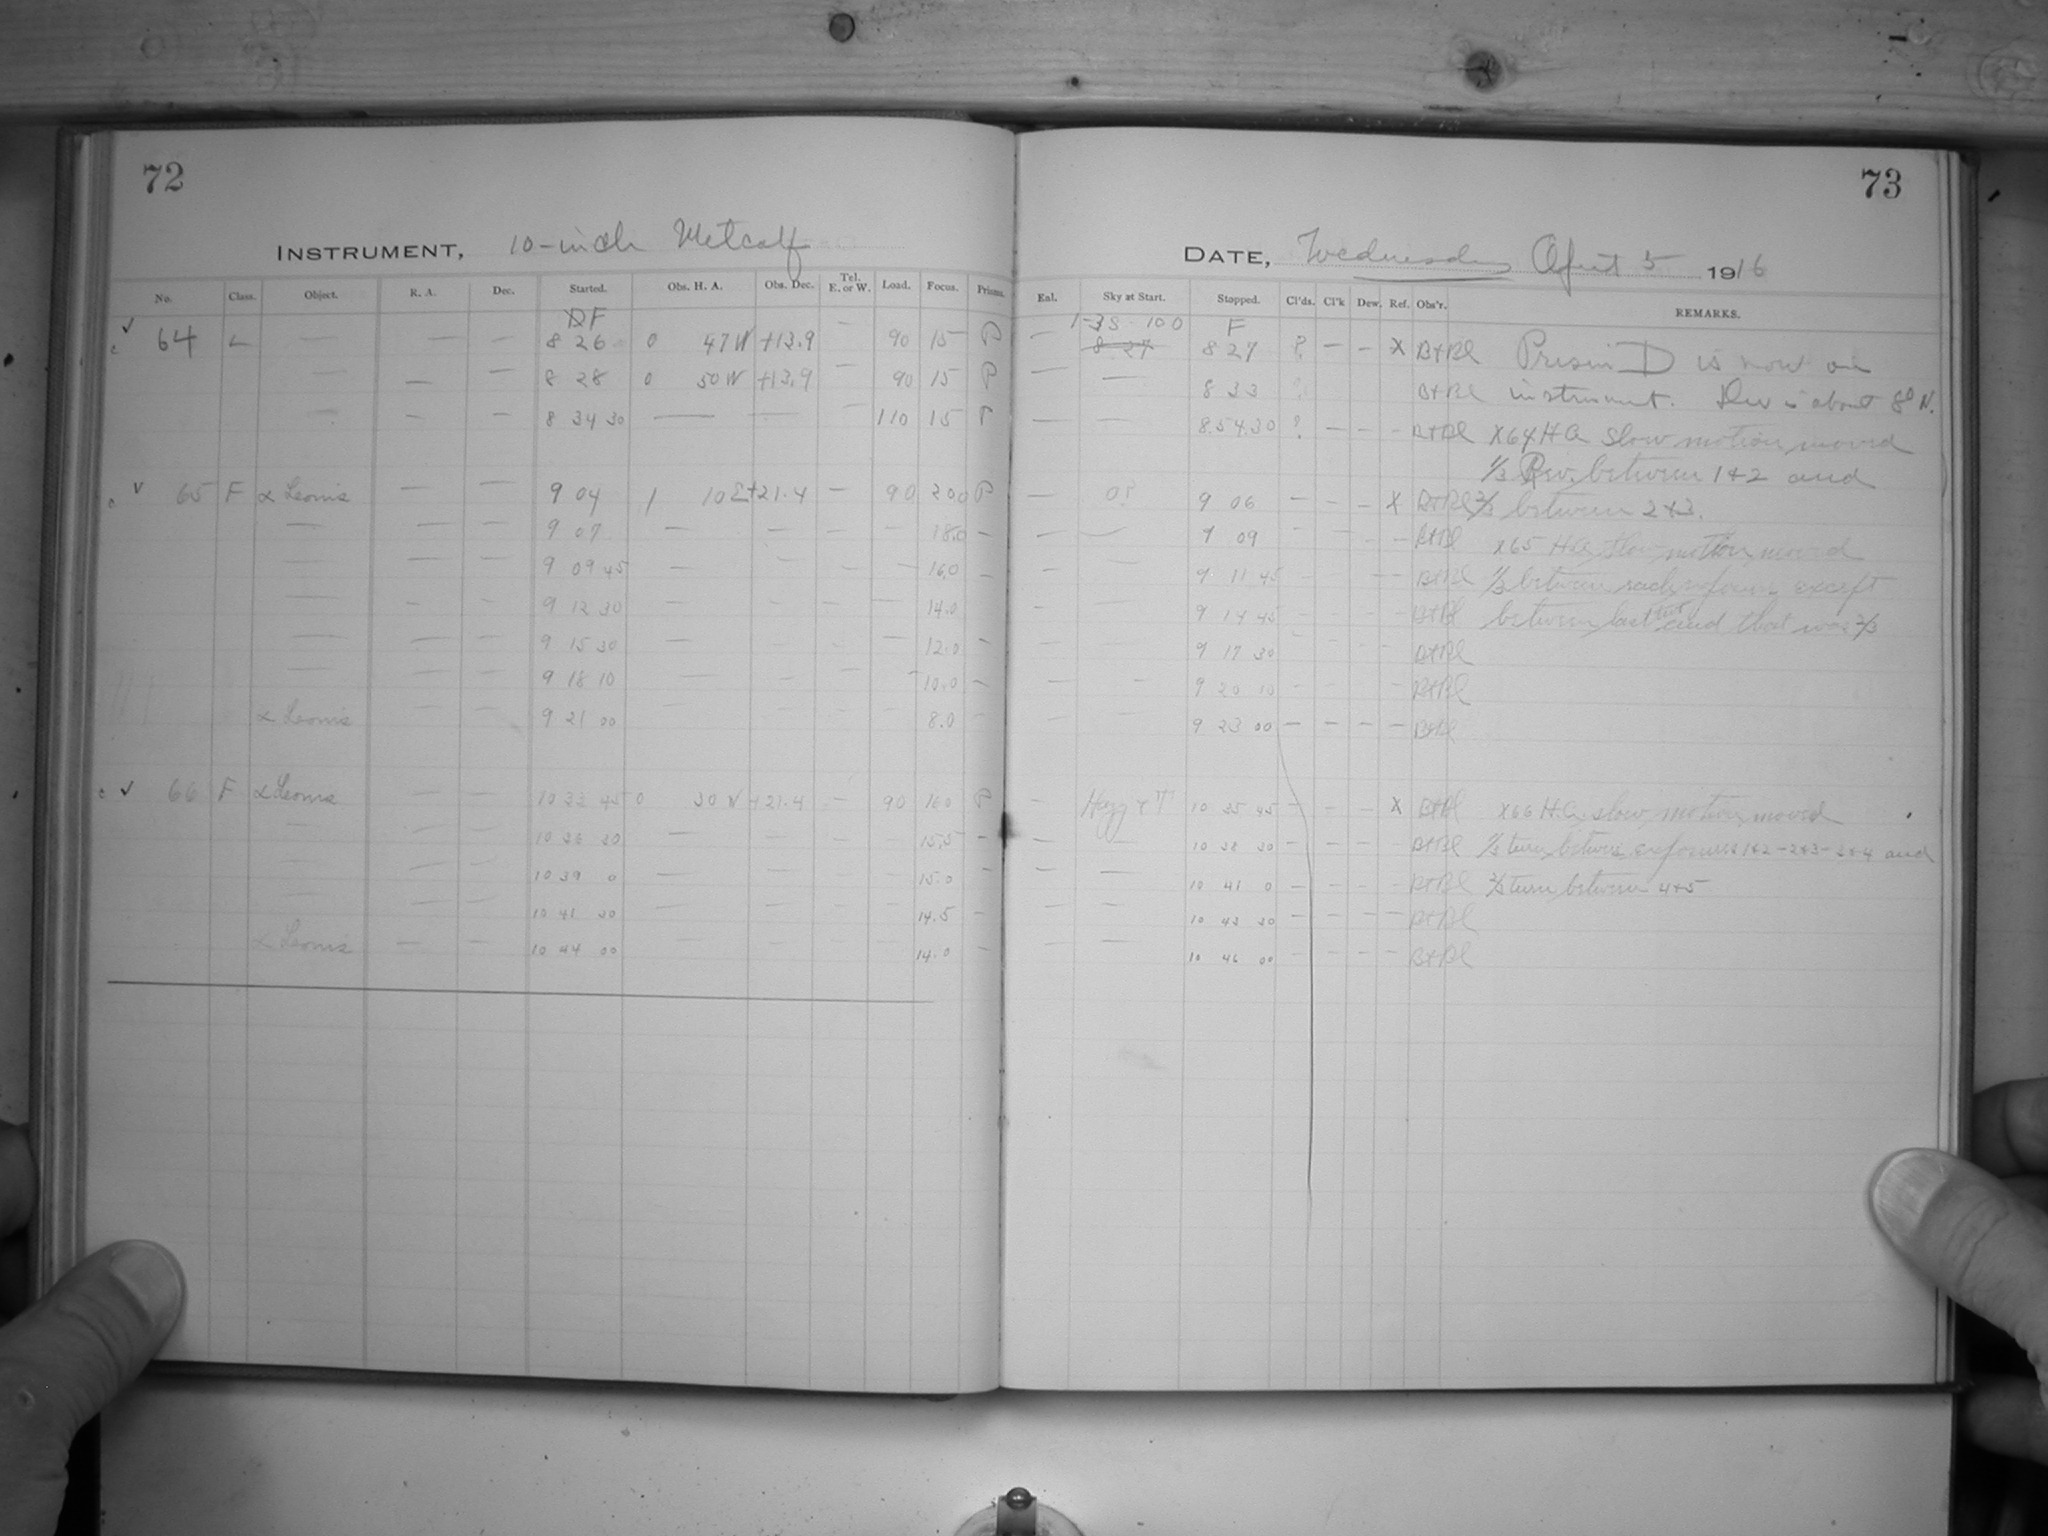 72
INSTRUMENT, 10-inch Metcalf
No. Class. Object. R. A. Dec. Started. Obs. H. A. Obs. Dec. Tel. E. or W. Load. Focus. Prisms.
DF
64 L — — — 8 26 0 47 W +13.9 — 90 15 P
— — — 8 28 0 50 W +13.9 — 90 15 P
— — 8 34 30 — — — 110 15 P
65 F α Leonis — — 9 04 1 10 E +21.4 — 90 200 P
— — — 9 07 — — — — 18.0 —
— — — 9 09 45 — — — — 16.0 —
— — — 9 12 30 — — — — 14.0 —
— — — 9 15 30 — — — — 12.0 —
— — — 9 18 10 — — — — 10.0 —
α Leonis — — 9 21 00 — — — — 8.0 —
66 F α Leonis — — 10 33 45 0 30 W +21.4 — 90 160 P
— — — 10 36 30 — — — — 15.5 —
— — — 10 39 0 — — — — 15.0 —
— — 10 41 30 — — — — 14.5 —
α Leonis — — 10 44 00 — — — — 14.0 —
73
DATE, Wednesday April 5 1916
Eal. Sky at Start. Stopped. Cl'ds. Cl'k Dew. Ref. Obs'r. REMARKS.
1-3S 100 F
— 8 27 8 27 ? — — X B+Bl Prism D is now on
— — 8 33 B+Bl instrument. Dev is about 8° N.
— — 8.54.30 ? — — - B+Bl X64 H.A. Slow motion moved
1/3 Rev. between 1+2 and
— 0? 9 06 — — — X B+Bl 2/3 between 2+3.
— — 9 09 — — — B+Bl X65 H.A. slow motion moved
— — 9 11 45 — — — B+Bl 1/3 between each exposure except
— — 9 14 45 — — — B+Bl between last two and that was 2/3
— — 9 17 30 — — — B+Bl
— — 9 20 10 — — — B+Bl
— — 9 23 00 — — — — B+Bl
— Hazy + T 10 35 45 — — — X B+Bl X66 H.A. slow motion moved
— — 10 38 30 — — — — B+Bl 1/3 turn between exposures 1+2-2+3-3+4 and
— — 10 41 0 — — — — B+Bl 2/3 turn between 4+5
— — 10 43 30 — — — — B+Bl
— — 10 46 00 — — — — B+Bl